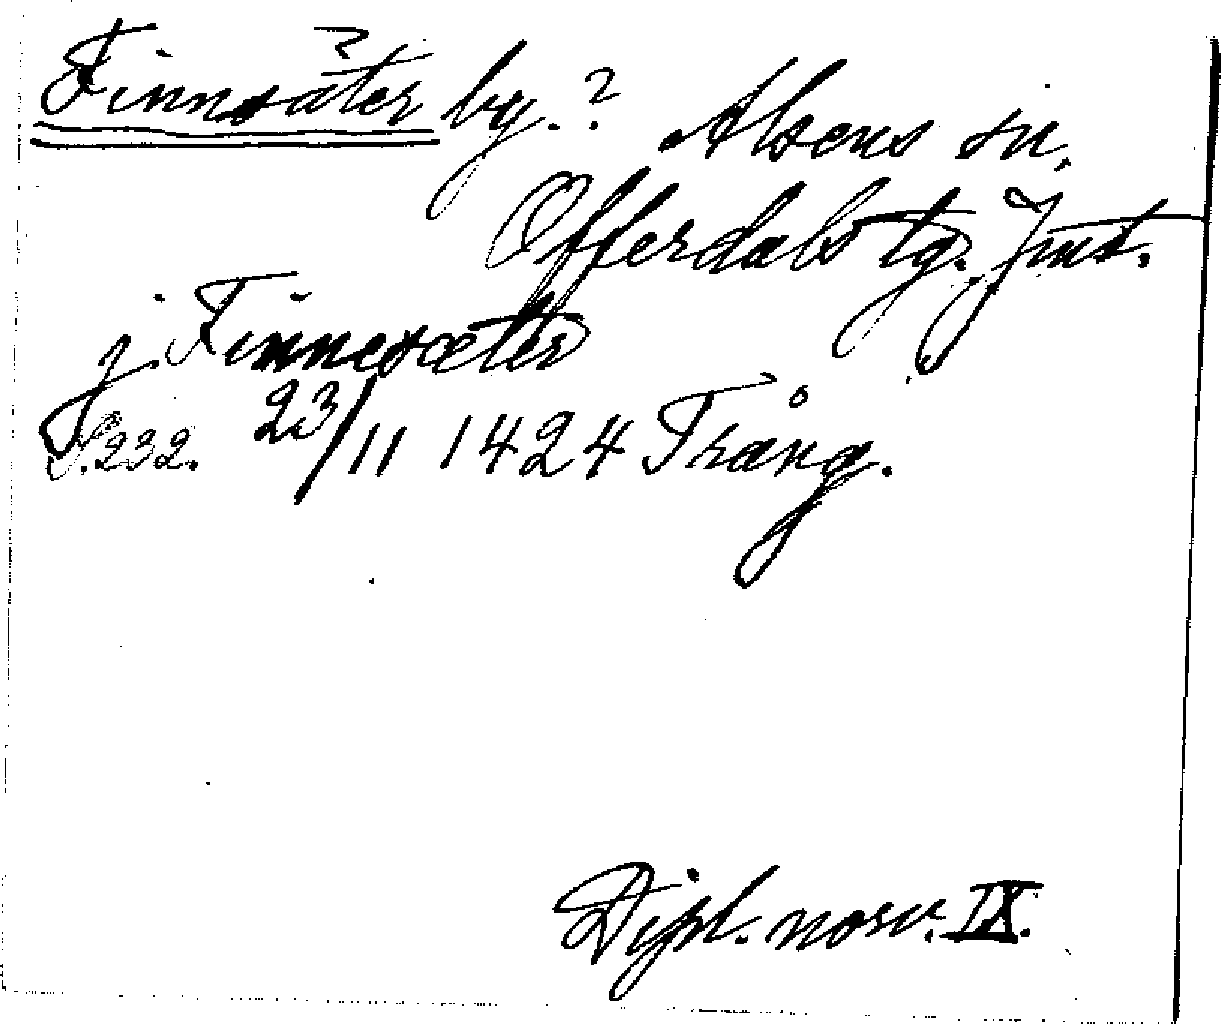 Finnsäter by.? Alsens sn.
Offerdals tg. Jmt.
j Finnesæter
S. 232. 23/11 1424 Trång.
Dipl. norv. IX.